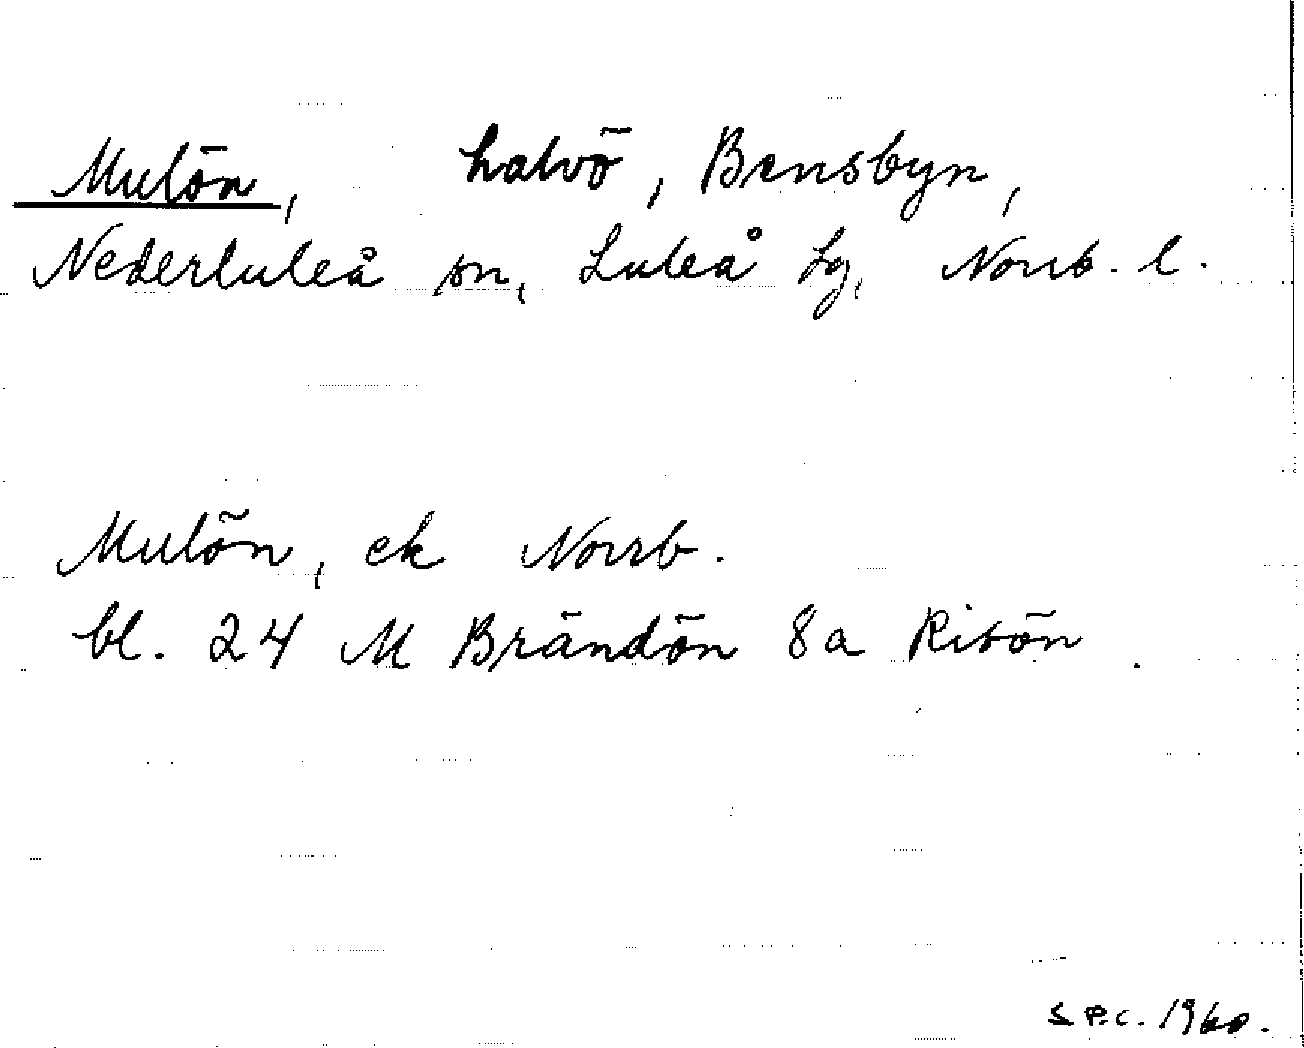 Mulön, halvö, Bensbyn,
Nederluleå sn, Luleå tg, Norrb. l.
Mulön, ek Norrb.
bl. 24 M Brändön 8a Risön.
S P.C. 1960.